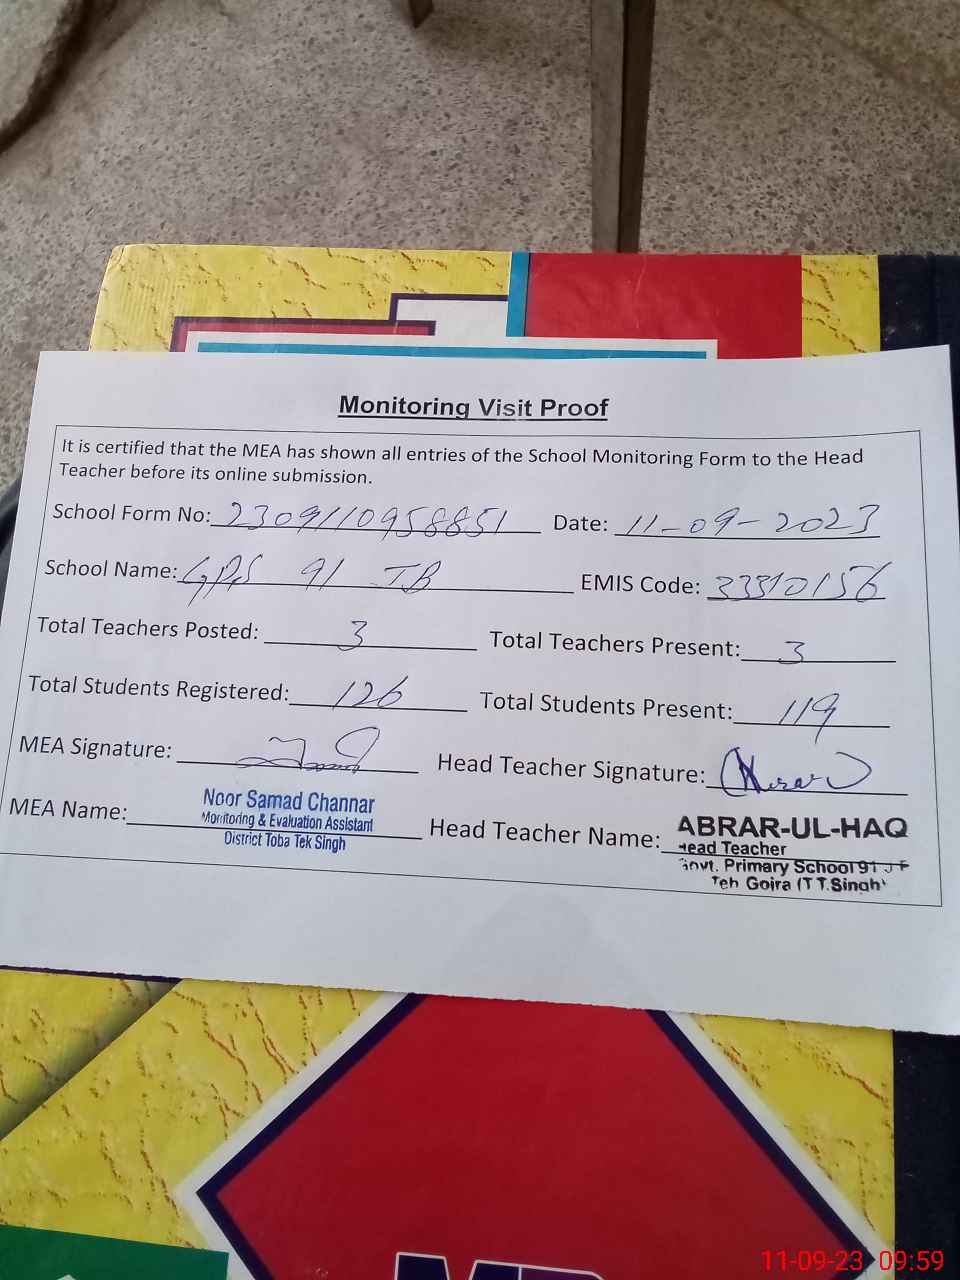 Monitoring Visit Proof
It is certified that the MEA has shown all entries of the School Monitoring Form to the Head
Teacher before its online submission.
School Form No: 2309110958851 Date: 11-09-2023
School Name: GPS 91 JB EMIS Code: 33310156
Total Teachers Posted: 3 Total Teachers Present: 3
Total Students Registered: 126 Total Students Present: 119
MEA Signature: Head Teacher Signature:
MEA Name: Noor Samad Channar
Monitoring & Evaluation Assistant
District Toba Tek Singh
Head Teacher Name: ABRAR-UL-HAQ
Head Teacher
Govt. Primary School 91
Teh Gojra (T.T.Singh)
11-09-23 09:59